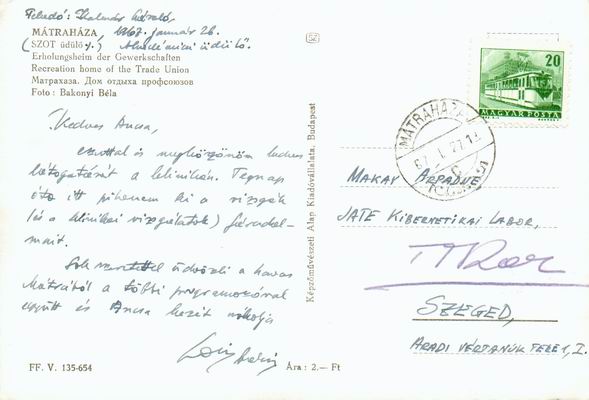 Feladó: Kalmár László,
MÁTRAHÁZA, 1967. január 26.
(SZOT üdülő). Akadémiai üdülő.
Erholungsheim der Gewerkschaften
Recreation home of the Trade Union
Матрахаза. Дом отдыха профсоюзов
Foto: Bakonyi Béla
Kedves Ancsa,
ezúttal is megköszönöm kedves
látogatását a klinikán. Tegnap
óta itt pihenem ki a vizsgák
(és a klinikai vizsgálatok) fáradal-
mait.
Sok szeretettel üdvözli a havas
Mátrából a többi programozóval
együtt és Ancsa kezét csókolja
FF. V. 135-654
Ára: 2.— Ft
Képzőművészeti Alap Kiadóvállalata, Budapest
20
MAGYAR POSTA
MÁTRAHÁZA
67 I. 27 13
MAKAY ÁRPÁDNÉ
JATE KIBERNETIKAI LABOR,
SZEGED,
ARADI VÉRTANÚK TERE 1, I.